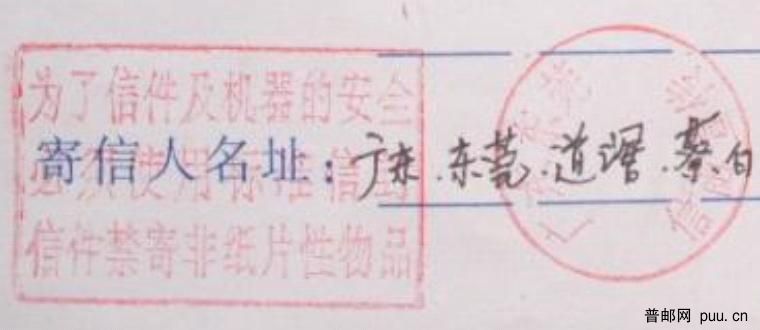 为了信件及机器的安全
寄信人名址:广东.东莞.道滘.蔡白
必须使用标准信封
信件禁寄非纸片性物品
普邮网 puu.cn